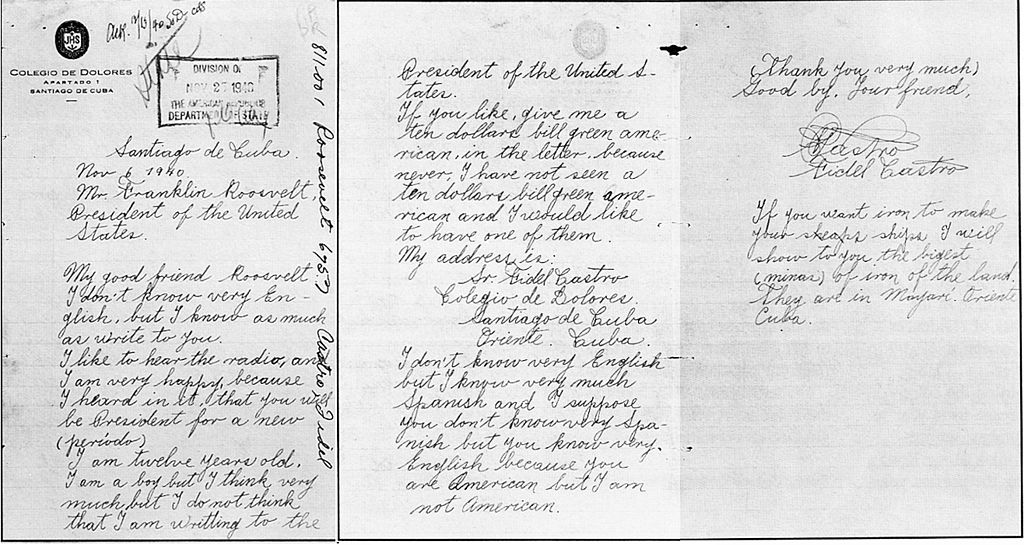 JHS
COLEGIO DE DOLORES
APARTADO 1
SANTIAGO DE CUBA
DIVISION OF
NOV 27 1940
THE AMERICAN REPUBLICS
DEPARTMENT OF STATE
Santiago de Cuba.
Nov 6 1940.
Mr. Franklin Roosvelt,
President of the United
States.
My good friend Roosvelt
I don't know very En-
glish, but I know as much
as write to you.
I like to hear the radio, and
I am very happy, because
I heard in it, that you will
be President for a new
(período)
I am twelve years old.
I am a boy but I think very
much but I do not think
that I am writting to the
811.001 Roosevelt 6957 Castro, Fidel
President of the United S-
tates.
If you like, give me a
ten dollars bill green ame-
rican, in the letter, because
never, I have not seen a
ten dollars bill green ame-
rican and I would like
to have one of them.
My address is:
Sr. Fidel Castro
Colegio de Dolores.
Santiago de Cuba
Oriente. Cuba.
I don't know very English
but I know very much
Spanish and I suppose
you don't know very Spa-
nish but you know very
English because you
are American but I am
not American.
(Thank you very much)
Good by. Your friend,
Castro
Fidel Castro
If you want iron to make
your sheaps ships I will
show to you the bigest
(minas) of iron of the land.
They are in Mayari. Oriente
Cuba.